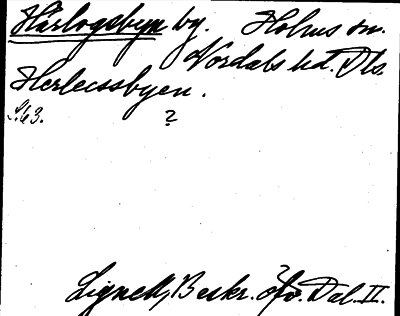 Härlogsbyn by. Holms sn.
Nordals hd. Dls.
Herlecssbyen.
S. 63. ?
Lignell, Beskr. öfv. Dal. II.